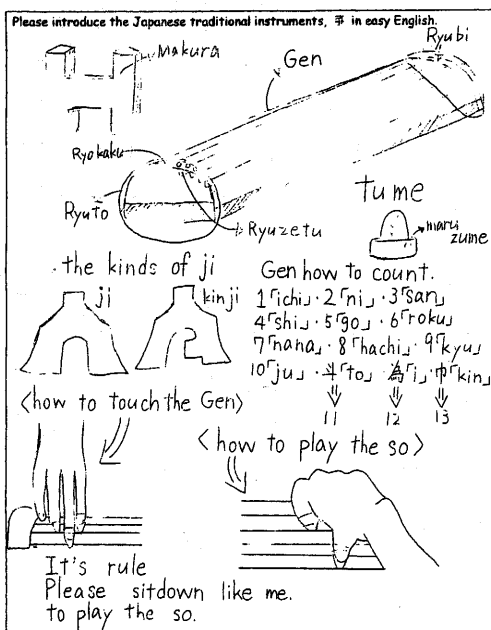 Please introduce the Japanese traditional instruments, in easy English.
Makura
Gen
Ryubi
Ryokaku
Ryuto
Ryuzetu
tume
maru
zume
・the kinds of ji
ji
kinji
Gen how to count.
1「ichi」・2「ni」・3「san」
4「shi」・5「go」・6「roku」
7「nana」・8「hachi」・9「kyu」
10「ju」・斗「to」・為「i」・巾「kin」
11 12 13
<how to touch the Gen>
<how to play the so>
It's rule
Please sitdown like me.
to play the so.